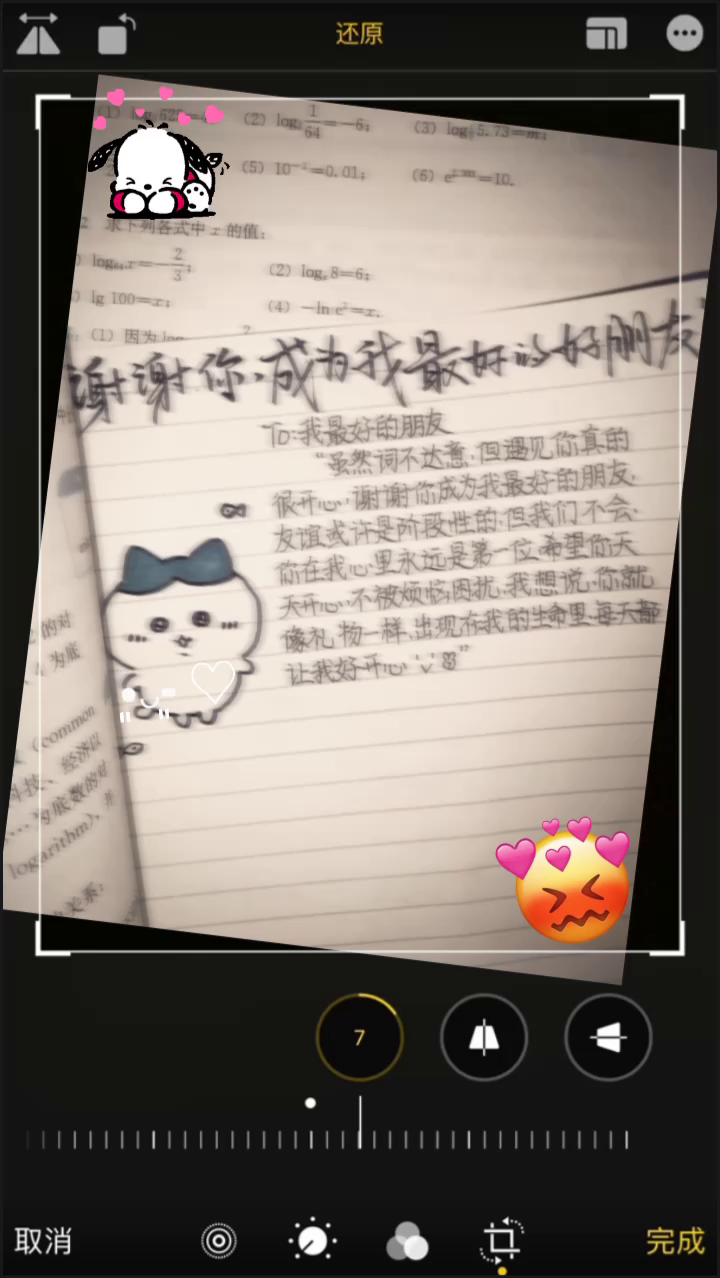 还原
(1) log
(2) log 1/64=-6;
(3) log 5.73=m;
(5) 10 =0.01;
(6) e =10.
求下列各式中 x 的值:
log₆₄x=-2/3;
(2) logₓ8=6;
lg 100=x;
(4) -ln e²=x.
(1) 因为log
谢谢你,成为我最好的好朋友
To:我最好的朋友
“虽然词不达意,但遇见你真的
很开心,谢谢你成为我最好的朋友,
友谊或许是阶段性的,但我们不会,
你在我心里永远是第一位,希望你天
天开心,不被烦恼困扰,我想说,你就
像礼物一样,出现在我的生命里,每天都
让我好开心 ˙ᵕ˙ ”
的对
为底
(common
科技、经济以
为底数的对
logarithm),并
关系:
7
取消
完成